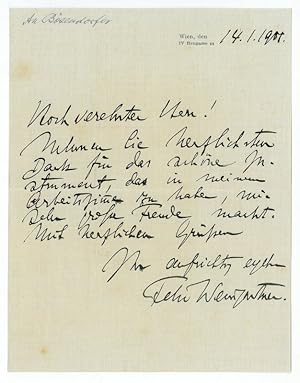 An Bösendorfer
Wien, den 14.1.1911
IV Heugasse
Hochverehrter Herr!
Nehmen Sie herzlichsten
Dank für das schöne In-
strument, das in meinem
Arbeitszimmer zu haben, mir
sehr große Freude macht.
Mit herzlichen Grüßen
Ihr aufrichtig ergebener
Felix Weingartner.